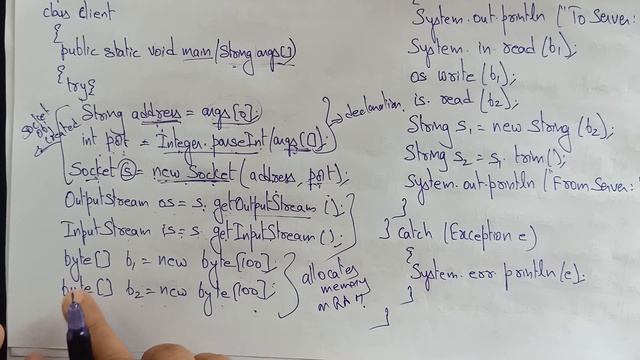 class Client
{
public static void main(String args[])
{ try {
String address = args[0];
int port = Integer.parseInt(args[1]);
Socket s = new Socket(address, port);
OutputStream os = s. getOutputStream ();
InputStream is = s. getInputStream ();
byte[] b1 = new byte[100];
byte[] b2 = new byte[100];
Socket obj created
declaration
allocates
memory
in RAM.
System.out.println ("To Server:
System.in read (b1);
os write (b1);
is. read (b2);
String s1 = new String (b2);
String s2 = s1. trim();
System.out.println ("From Server:
}
} catch (Exception e)
{
System. err println(e);
}
}